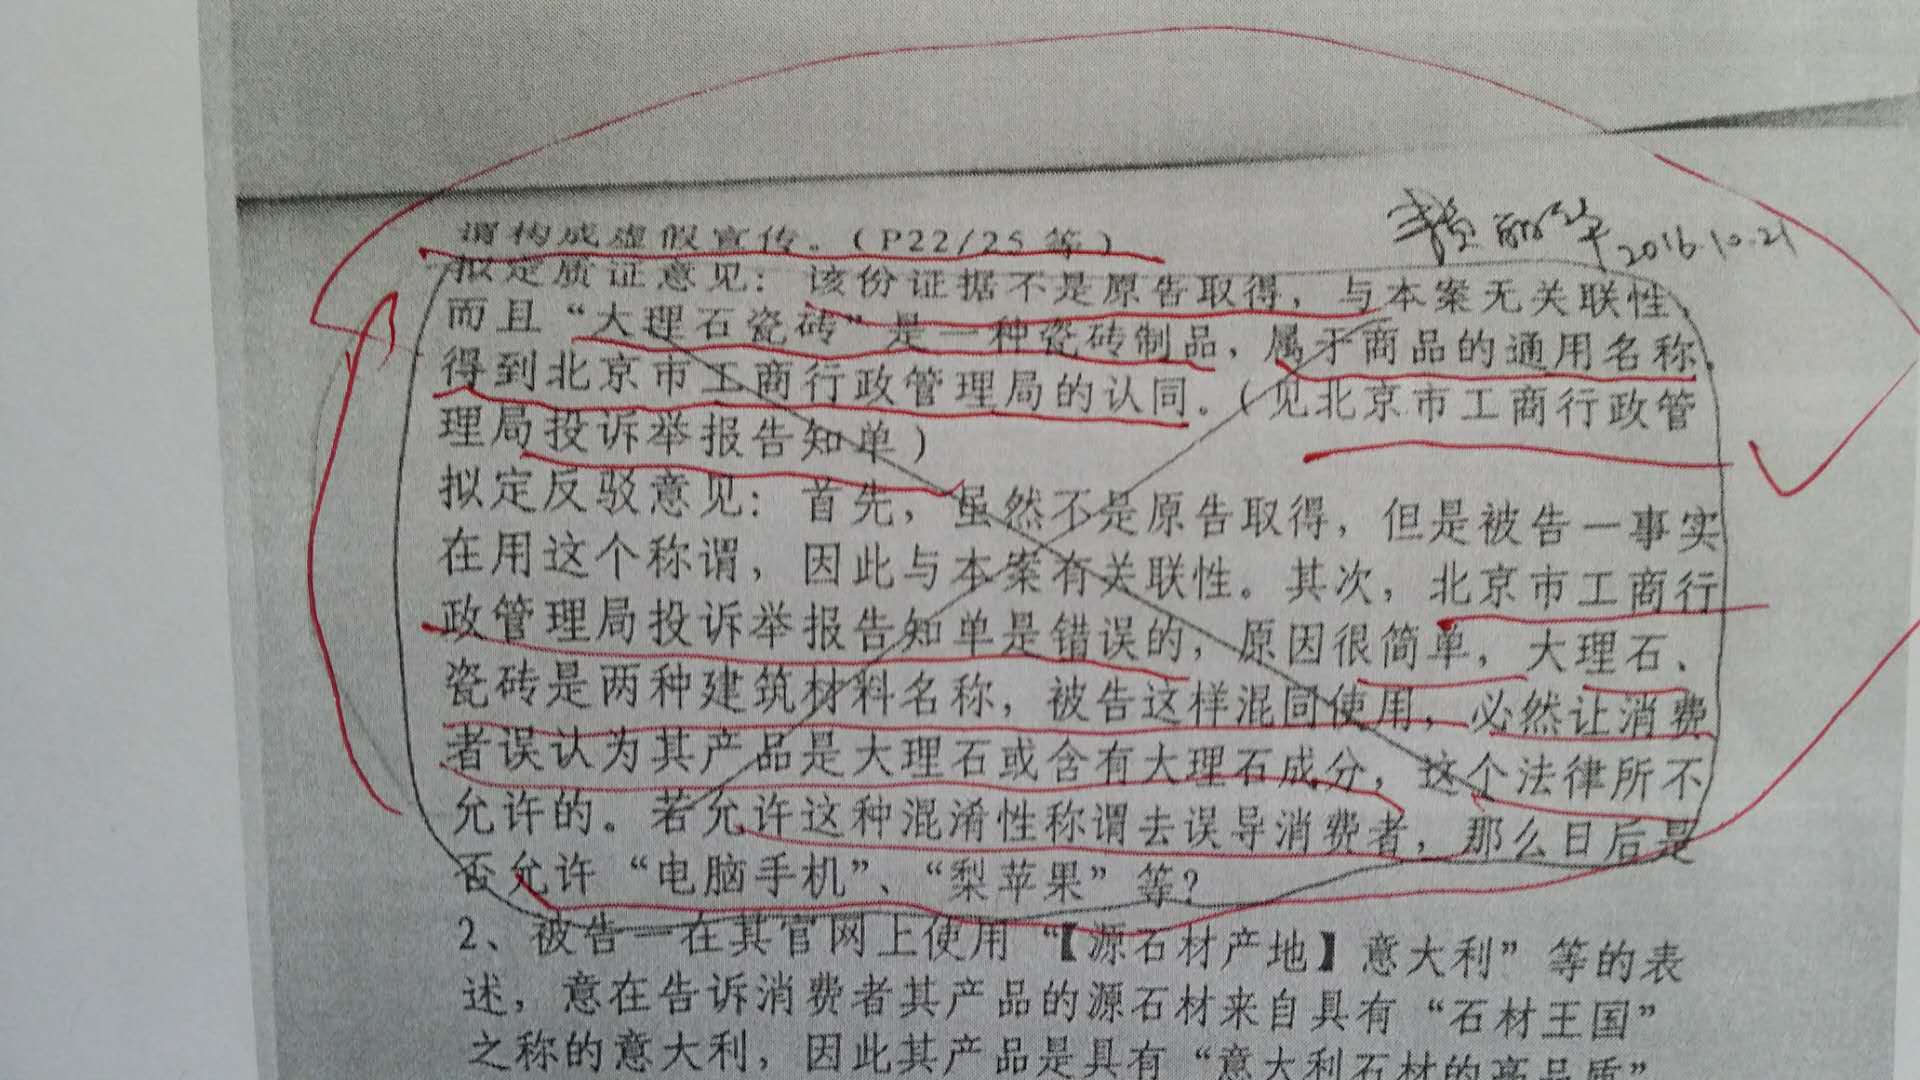 谓构成虚假宣传。（P22/25等）
2016.10.21
拟定质证意见：该份证据不是原告取得，与本案无关联性，
而且“大理石瓷砖”是一种瓷砖制品，属于商品的通用名称，
得到北京市工商行政管理局的认同。（见北京市工商行政管
理局投诉举报告知单）
拟定反驳意见：首先，虽然不是原告取得，但是被告一事实
在用这个称谓，因此与本案有关联性。其次，北京市工商行
政管理局投诉举报告知单是错误的，原因很简单，大理石、
瓷砖是两种建筑材料名称，被告这样混同使用，必然让消费
者误认为其产品是大理石或含有大理石成分，这个法律所不
允许的。若允许这种混淆性称谓去误导消费者，那么日后是
否允许“电脑手机”、“梨苹果”等？
2、被告一在其官网上使用“【源石材产地】意大利”等的表
述，意在告诉消费者其产品的源石材来自具有“石材王国”
之称的意大利，因此其产品是具有“意大利石材的高品质”